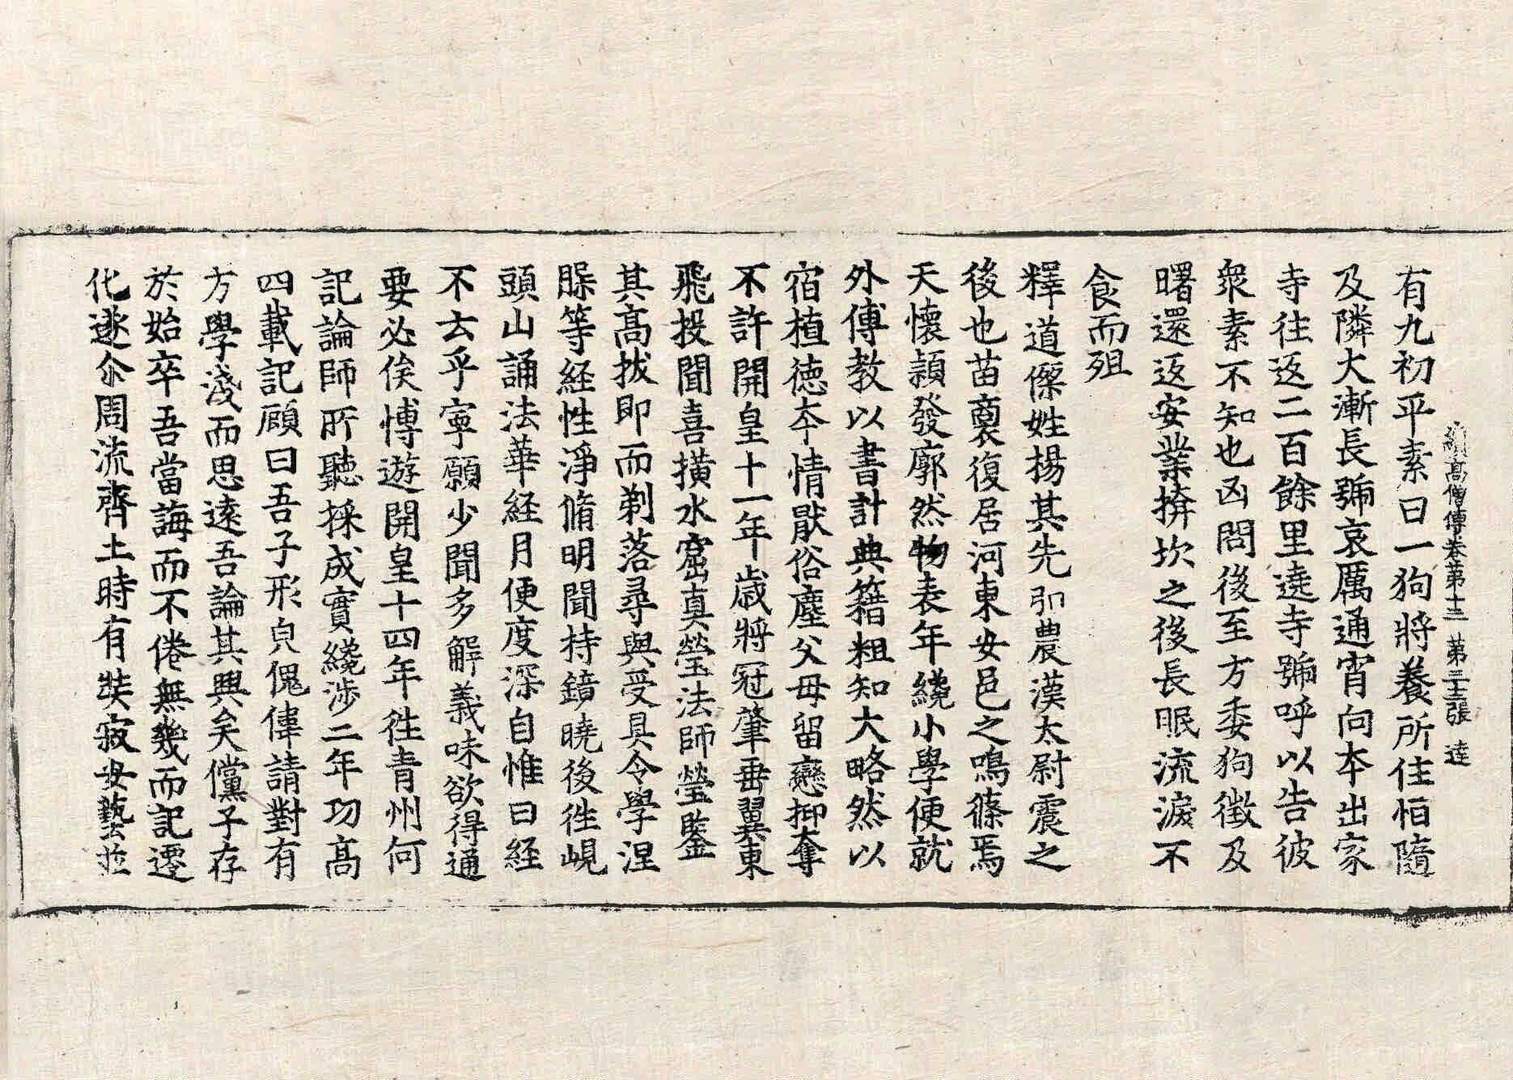 續高僧傳卷第十三 第三十三張 達
有九初平素曰一狗將養所住恒隨
及隣大漸長號哀厲通宵向本出家
寺往返二百餘里遶寺號呼以告彼
衆素不知也凶問後至方委狗徵及
曙還返安業擠坎之後長眠流淚不
食而殂
釋道傑姓揚其先弘農漢太尉震之
後也苗裔復居河東安邑之鳴篠焉
天懷穎發廓然物表年纔小學便就
外傅教以書計典籍粗知大略然以
宿植德本情猒俗塵父母留戀抑奪
不許開皇十一年歲將冠肇垂翼東
飛投聞喜橫水窟真瑩法師瑩鑒
其高拔即而剃落尋與受具令學涅
槃等経性淨脩明聞持鏡曉後徃峴
頭山誦法華経月便度深自惟曰経
不云乎寧願少聞多解義味欲得通
要必俟博遊開皇十四年徃青州何
記論師所聽採成實纔涉二年功高
四載記顧曰吾子形皃傀偉請對有
方學淺而思遠吾論其興矣儻子存
於始卒吾當誨而不倦無幾而記遷
化遂尒周流齊土時有裝寂安藝並